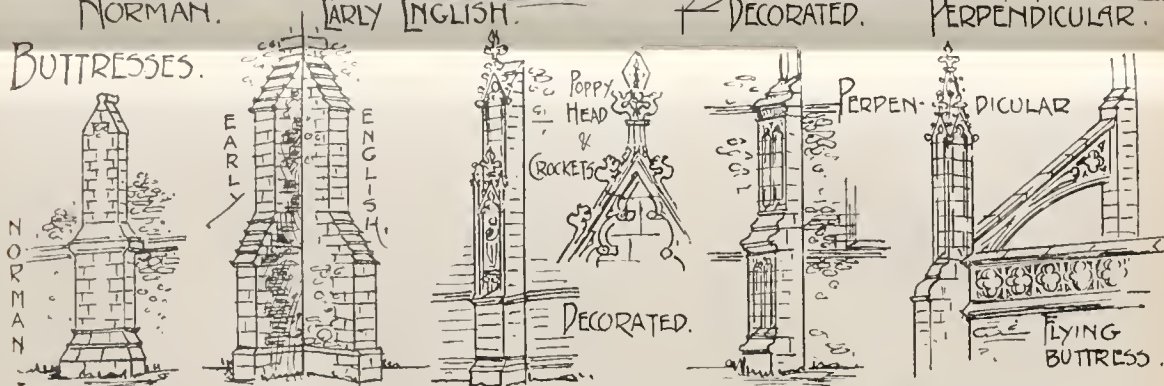 NORMAN.
EARLY ENGLISH.
DECORATED.
PERPENDICULAR.
BUTTRESSES.
NORMAN
EARLY
ENGLISH.
POPPY
HEAD
&
CROCKETS
DECORATED.
PERPEN-DICULAR
FLYING
BUTTRESS.